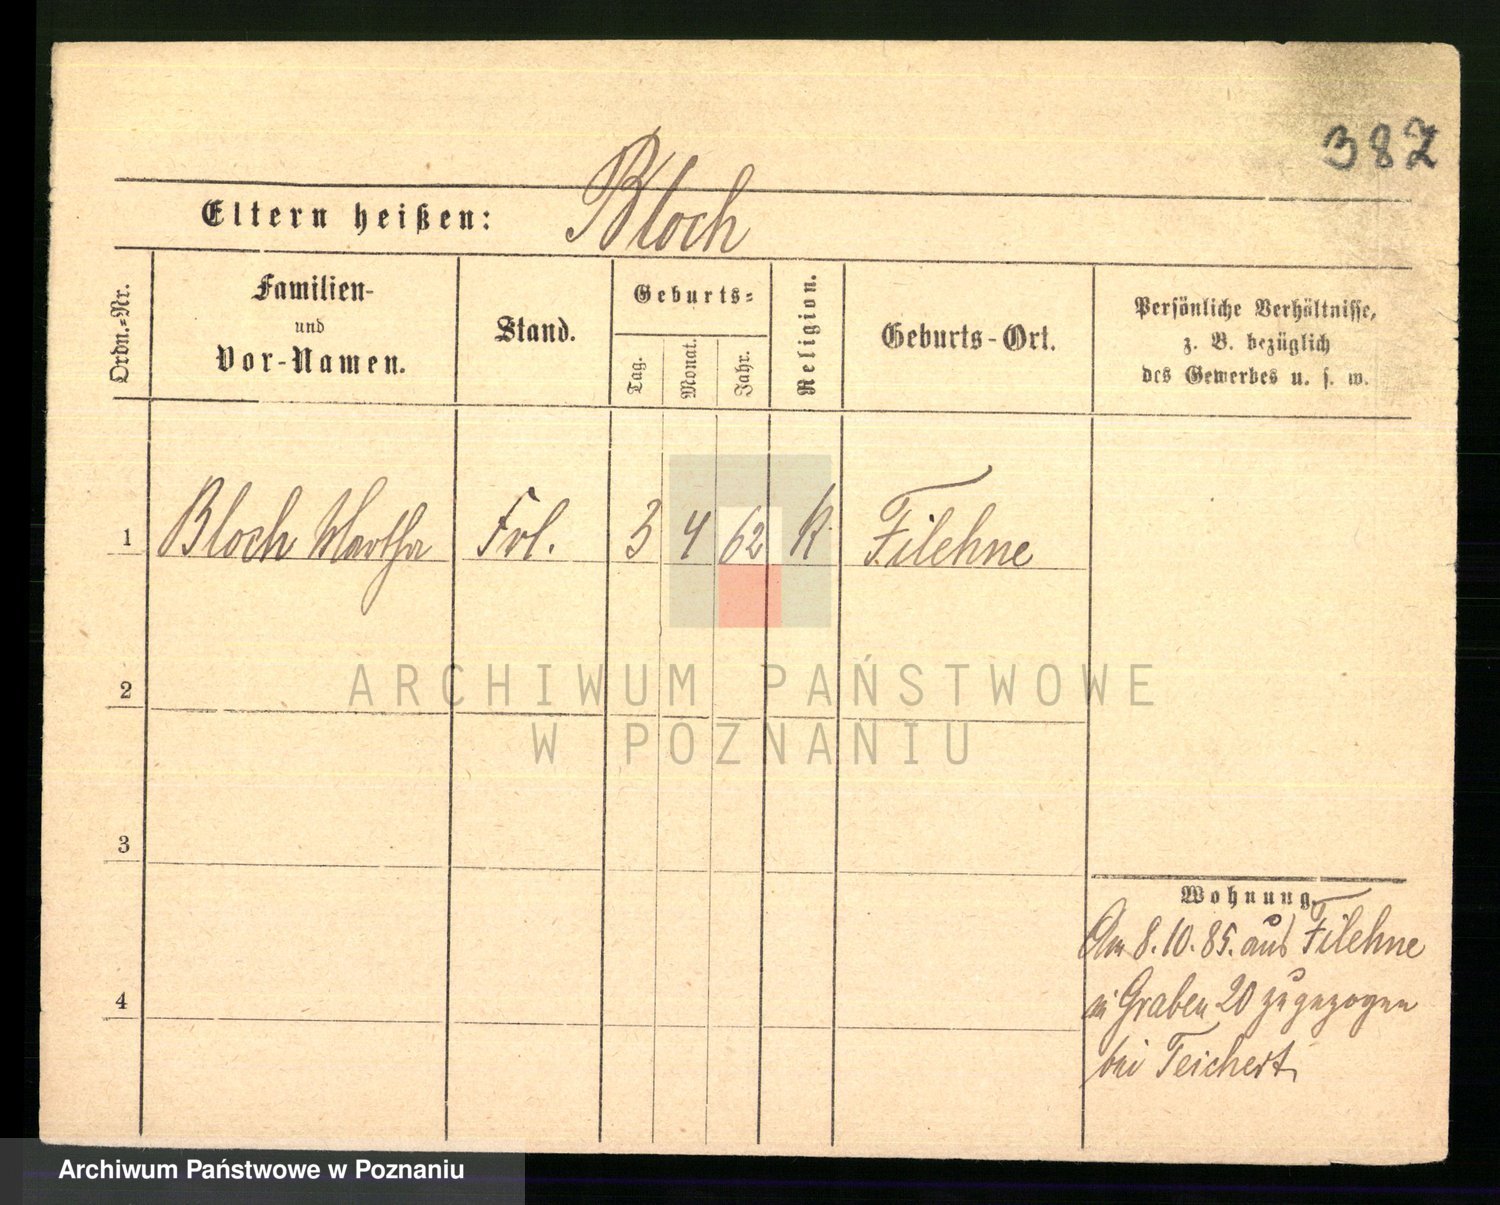 382
Eltern heißen: Bloch
Ordn.-Nr.
Familien-
und
Vor-Namen.
Stand.
Geburts-
Tag.
Monat.
Jahr.
Religion.
Geburts-Ort.
Persönliche Verhältnisse,
z. B. bezüglich
des Gewerbes u. s. w.
1 Bloch Martha Frl. 3 4 62 K. Filehne
2
3
4
Wohnung.
Am 8.10.85. aus Filehne
n. Graben 20 zugezogen
bei Teichert
ARCHIWUM PAŃSTWOWE
W POZNANIU
Archiwum Państwowe w Poznaniu